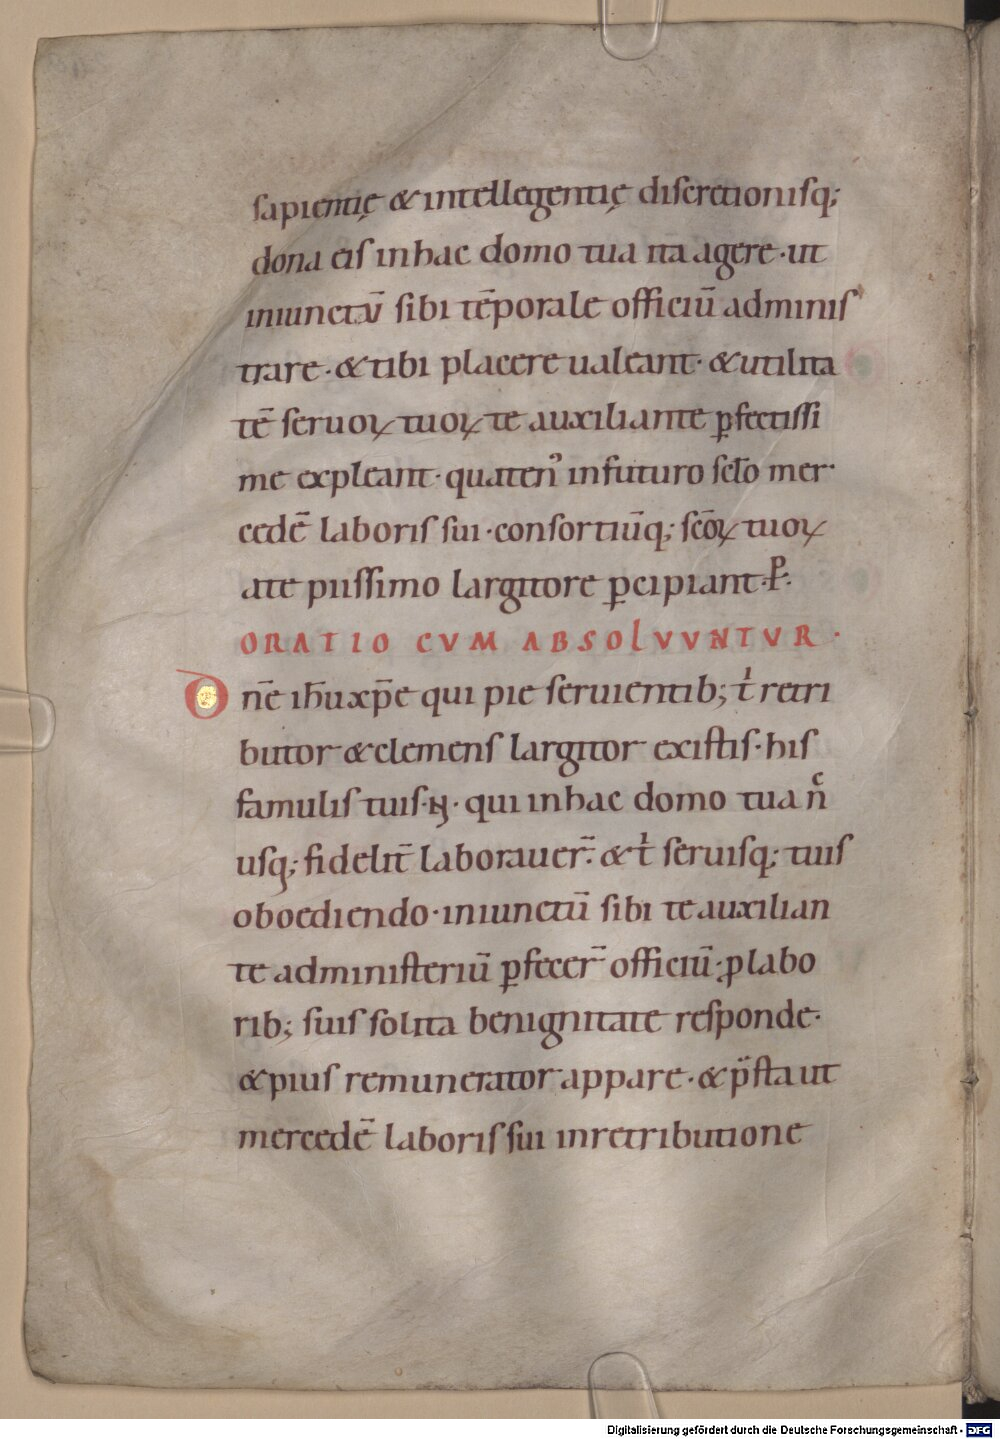 sapientię & intellegentię discretionisq;
dona eis inhac domo tua ita agere · ut
iniunctū sibi tēporale officiū adminis
trare · & tibi placere ualeant · & utilita
tē seruoꝝ tuoꝝ te auxiliante ꝑfectissi
me expleant · quaten᾽ infuturo sclo mer·
cedē laboris sui · consortiūq; scōꝝ tuoꝝ
ate piissimo largitore ꝑcipiant · P ·
ORATIO CVM ABSOLVVNTVR ·
Dn̄e ihūxp̄e qui pie seruientib; t̍ retri
butor & clemens largitor existis · his
famulis tuis · N · qui inhac domo tua n̄c
usq; fidelit̄ laborauer̄ · & t̍ seruisq; tuis
oboediendo · iniunctū sibi te auxilian
te administeriū ꝑfecer̄ officiū · ꝓ labo
rib; suis solita benignitate responde ·
& pius remunerator appare · & p̈sta ut
mercedē laboris sui inretributione
Digitalisierung gefördert durch die Deutsche Forschungsgemeinschaft - DFG